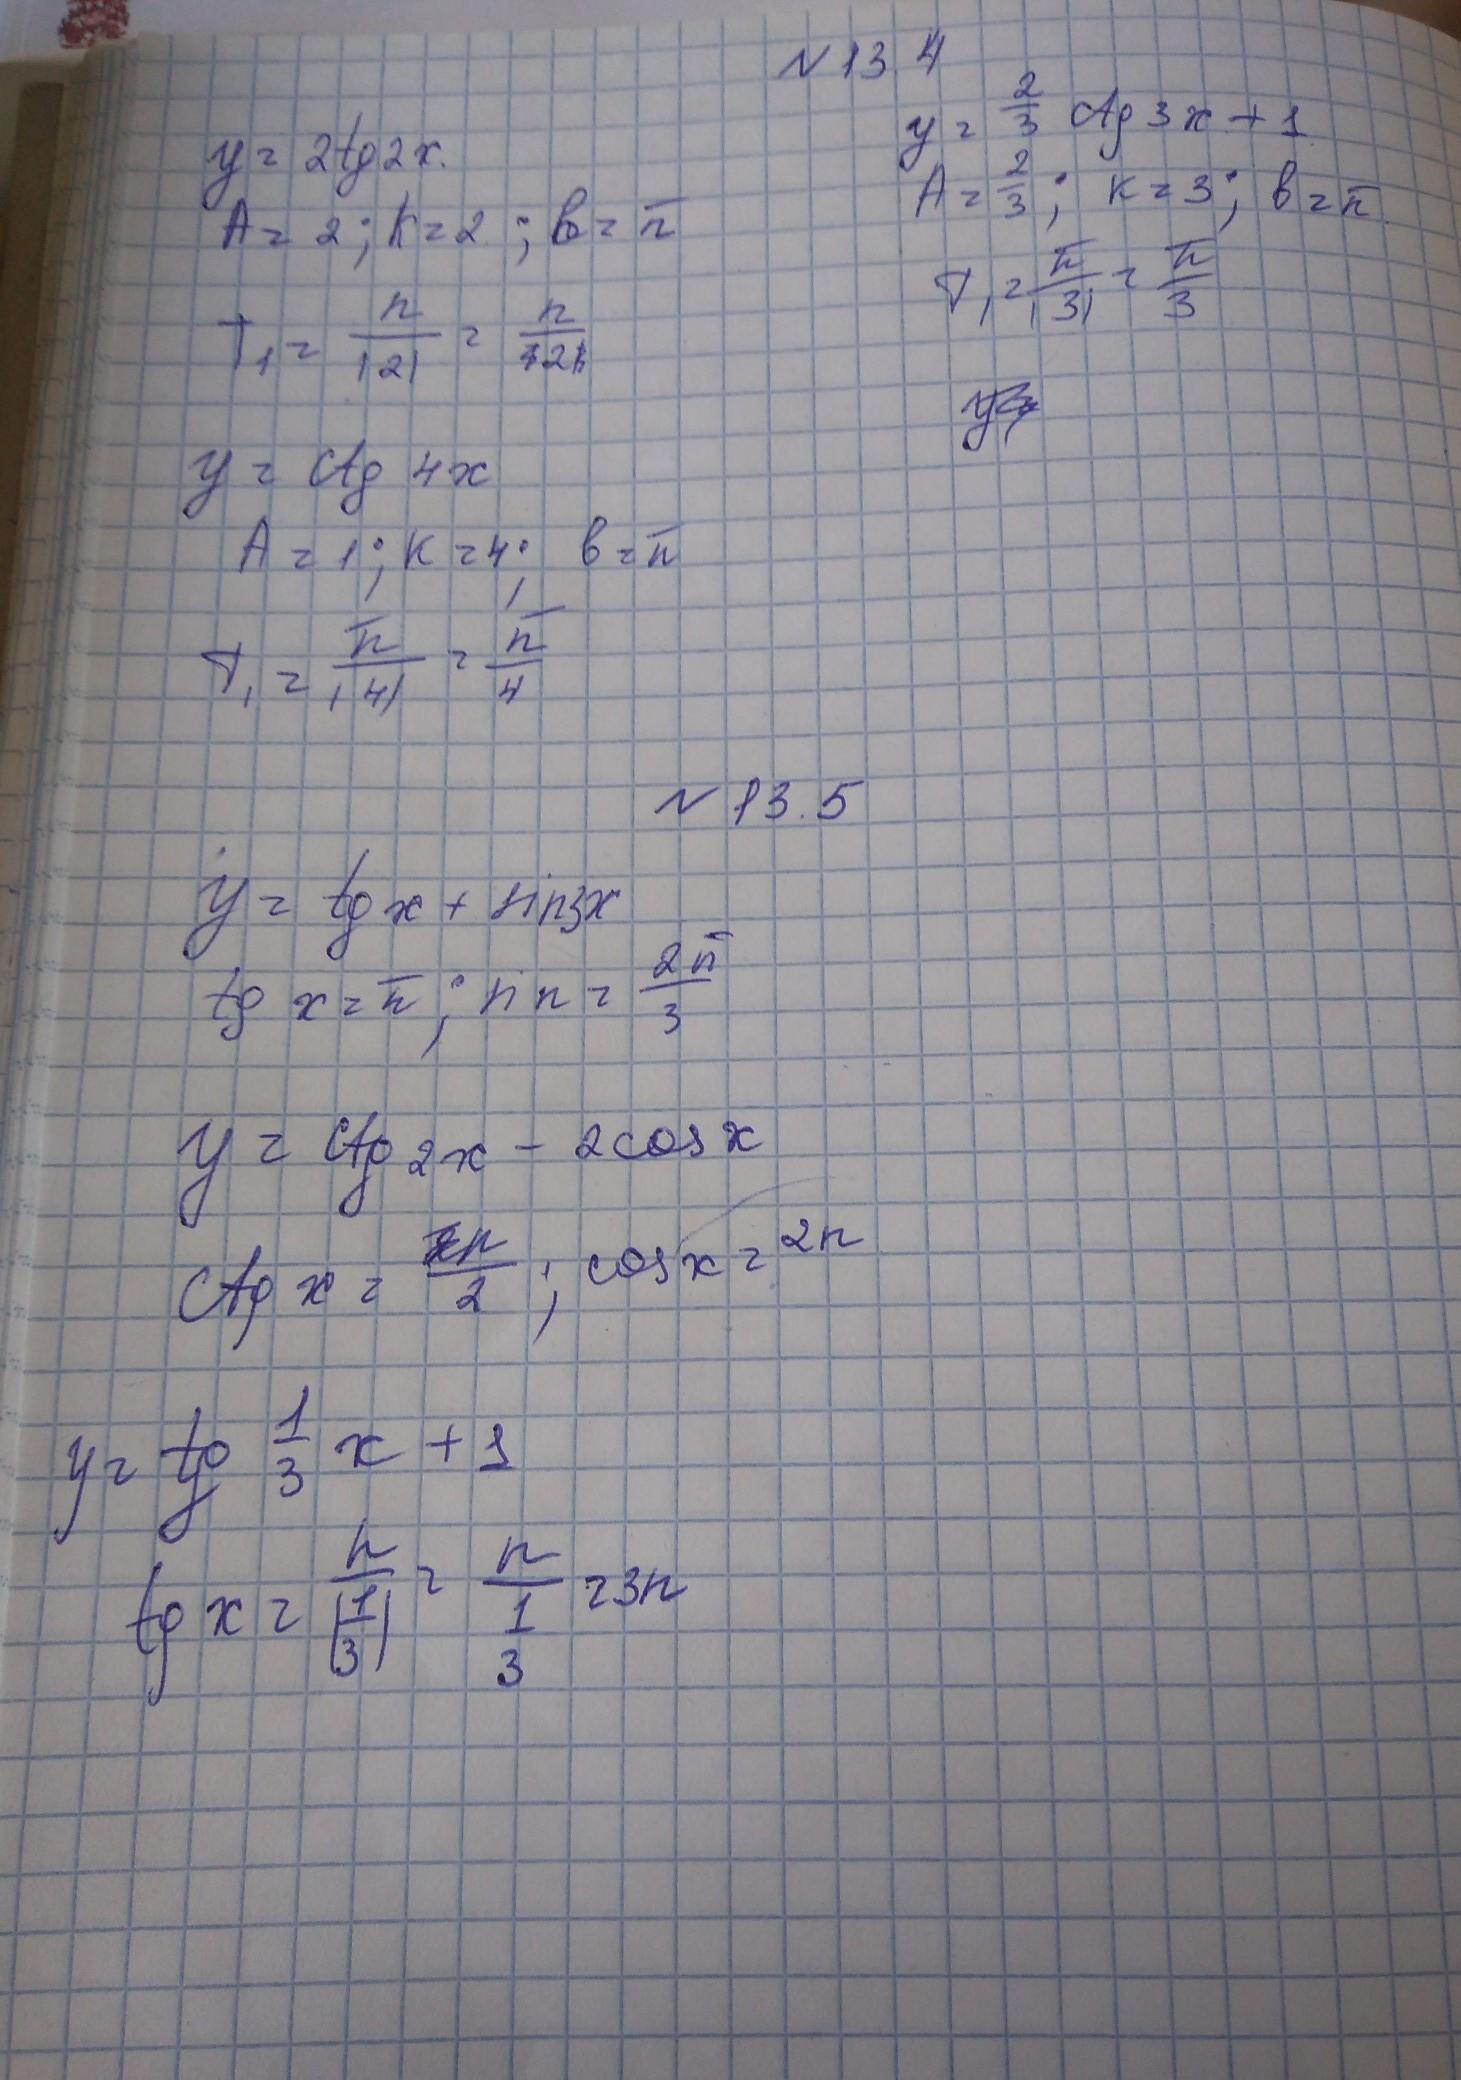 N 13.4
y = 2tg2x.
A = 2; k = 2; в = π
T₁ = π/|2| = π/2
y = ctg 4x
A = 1; к = 4; в = π
T₁ = π/|4| = π/4
y = 2/3 ctg 3x + 1
A = 2/3; к = 3; в = π
T₁ = π/|3| = π/3
N 13.5
y = tg x + sin3x
tg x = π; sin = 2π/3
y = ctg 2x - 2cosx
ctg x = π/2; cosx = 2π
y = tg 1/3 x + 1
tg x = π/|1/3| = π/1/3 = 3π